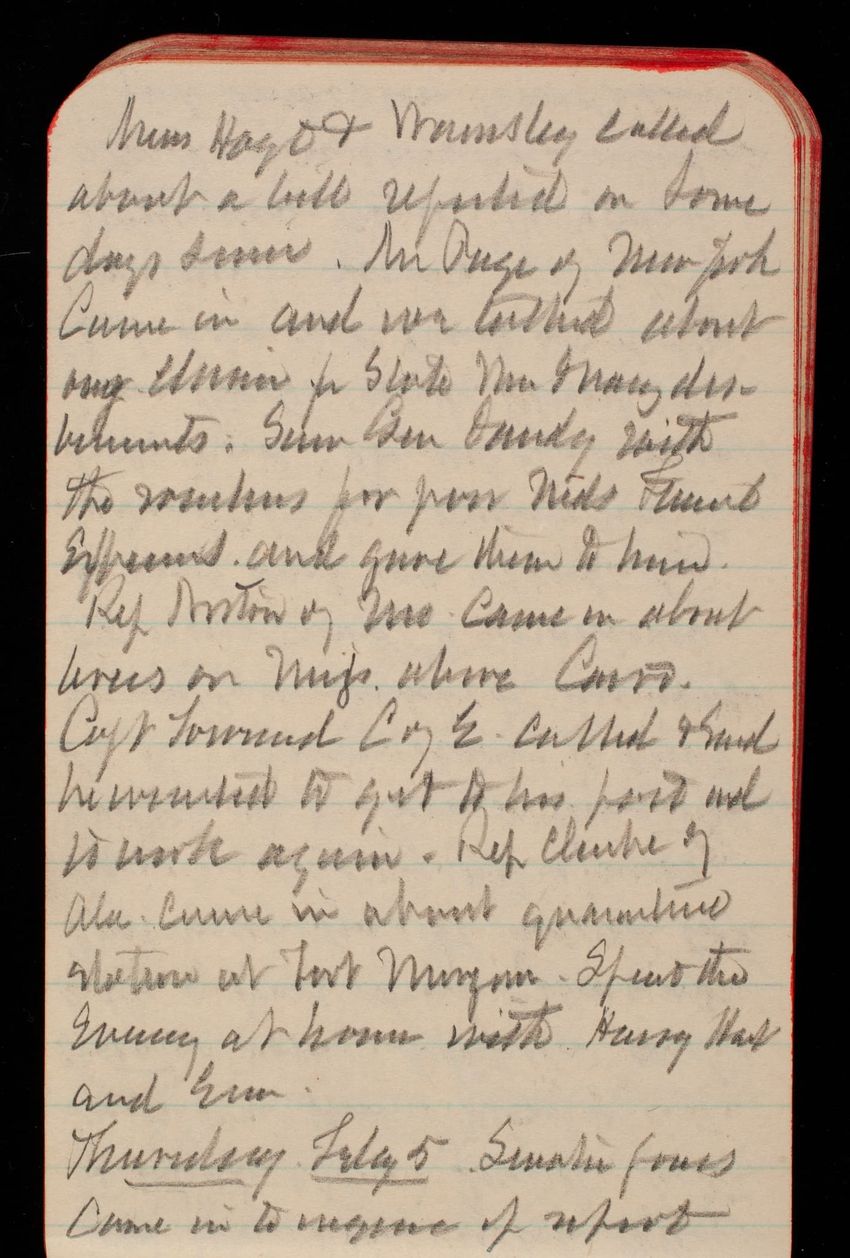 Hoyt & Wamsley called
about a bill reported on some
days since. Mr Page of New York
Came in and we talked about
our claim for State
. Saw Gen with
the vouchers for poor
and gave them to him.
Rep of Mo came in about
levees on Miss. above Cairo.
Capt Townsend Co E. called & said
he wanted to get to his post and
to work again. Rep Clarke of
Ala. came in about quarantine
station at Fort Morgan. Spent the
Evening at home with Harry Hat
and Em.
Thursday July 5. Senator Jones
Came in to inquire if report